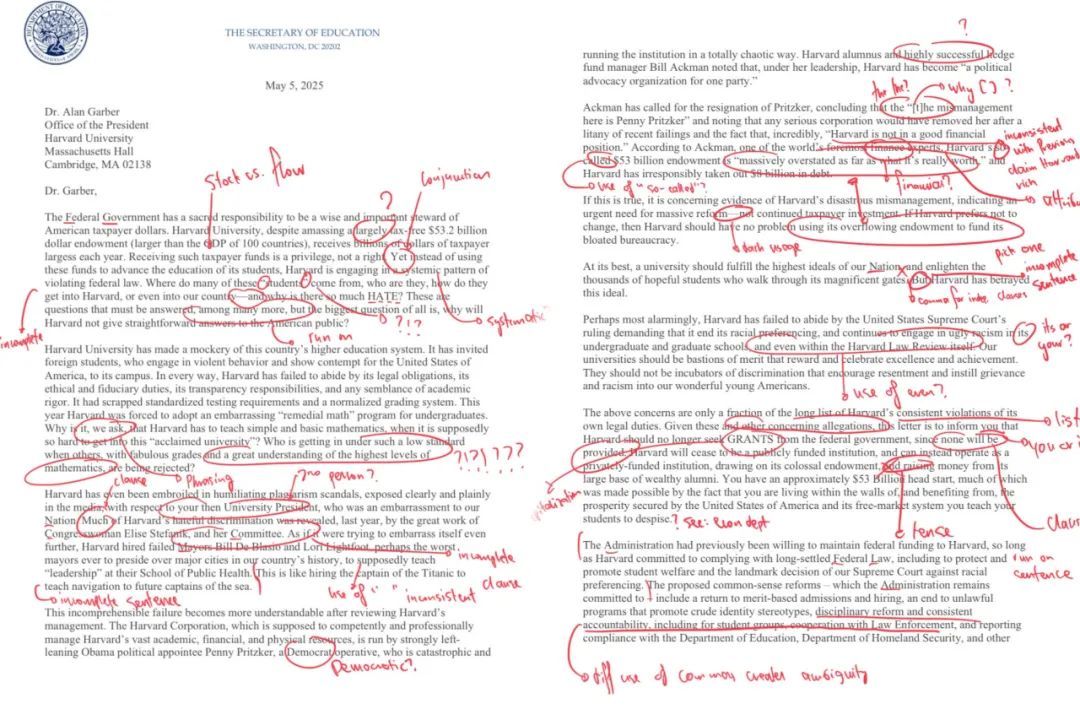 DEPARTMENT OF EDUCATION
THE SECRETARY OF EDUCATION
WASHINGTON, DC 20202
May 5, 2025
Dr. Alan Garber
Office of the President
Harvard University
Massachusetts Hall
Cambridge, MA 02138
Dr. Garber,
Stock vs. flow
Conjunction
?
The Federal Government has a sacred responsibility to be a wise and important steward of
American taxpayer dollars. Harvard University, despite amassing a largely tax-free $53.2 billion
dollar endowment (larger than the GDP of 100 countries), receives billions of dollars of taxpayer
largess each year. Receiving such taxpayer funds is a privilege, not a right. Yet instead of
using these funds to advance the education of its students, Harvard is engaging in a systemic pattern of
violating federal law. Where do many of these "students" come from, who are they, how do they
get into Harvard, or even into our country—and why is there so much HATE? These are
questions that must be answered, among many more, but the biggest question of all is, why will
Harvard not give straightforward answers to the American public?
systematic
?!?
run on
incomplete
Harvard University has made a mockery of this country's higher education system. It has invited
foreign students, who engage in violent behavior and show contempt for the United States of
America, to its campus. In every way, Harvard has failed to abide by its legal obligations, its
ethical and fiduciary duties, its transparency responsibilities, and any semblance of academic
rigor. It had scrapped standardized testing requirements and a normalized grading system. This
year Harvard was forced to adopt an embarrassing "remedial math" program for undergraduates.
Why is it, we ask, that Harvard has to teach simple and basic mathematics, when it is supposedly
so hard to get into this "acclaimed university"? Who is getting in under such a low standard
when others, with fabulous grades and a great understanding of the highest levels of
mathematics, are being rejected?
clause
Phrasing
2nd person?
Harvard has even been embroiled in humiliating plagiarism scandals, exposed clearly and plainly
in the media, with respect to your then University President, who was an embarrassment to our
Nation. Much of Harvard's hateful discrimination was revealed, last year, by the great work of
Congresswoman Elise Stefanik, and her Committee. As if it were trying to embarrass itself even
further, Harvard hired failed Mayors Bill De Blasio and Lori Lightfoot, perhaps the worst
mayors ever to preside over major cities in our country's history, to supposedly teach
"leadership" at their School of Public Health. This is like hiring the captain of the Titanic to
teach navigation to future captains of the sea.
incomplete
clause
use of " " inconsistent
incomplete sentence
This incomprehensible failure becomes more understandable after reviewing Harvard's
management. The Harvard Corporation, which is supposed to competently and professionally
manage Harvard's vast academic, financial, and physical resources, is run by strongly left-
leaning Obama political appointee Penny Pritzker, a Democrat operative, who is catastrophic and
Democratic?
?
running the institution in a totally chaotic way. Harvard alumnus and highly successful hedge
fund manager Bill Ackman noted that, under her leadership, Harvard has become "a political
advocacy organization for one party."
the the?
why [ ] ?
Ackman has called for the resignation of Pritzker, concluding that the "[t]he mismanagement
here is Penny Pritzker" and noting that any serious corporation would have removed her after a
litany of recent failings and the fact that, incredibly, "Harvard is not in a good financial
position." According to Ackman, one of the world's foremost finance experts, Harvard's so-
called $53 billion endowment is "massively overstated as far as what it's really worth," and
Harvard has irresponsibly taken out $8 billion in debt.
inconsistent
with previous
claim Harvard
rich
use of "so-called"?
financial?
If this is true, it is concerning evidence of Harvard's disastrous mismanagement, indicating an
urgent need for massive reform—not continued taxpayer investment. If Harvard prefers not to
change, then Harvard should have no problem using its overflowing endowment to fund its
bloated bureaucracy.
dash usage
pick one
At its best, a university should fulfill the highest ideals of our Nation, and enlighten the
thousands of hopeful students who walk through its magnificent gates. But Harvard has betrayed
this ideal.
incomplete
sentence
comma for inde. clauses
Perhaps most alarmingly, Harvard has failed to abide by the United States Supreme Court's
ruling demanding that it end its racial preferencing, and continues to engage in ugly racism in its
undergraduate and graduate schools, and even within the Harvard Law Review itself. Our
universities should be bastions of merit that reward and celebrate excellence and achievement.
They should not be incubators of discrimination that encourage resentment and instill grievance
and racism into our wonderful young Americans.
its or
your?
use of even?
The above concerns are only a fraction of the long list of Harvard's consistent violations of its
own legal duties. Given these and other concerning allegations, this letter is to inform you that
Harvard should no longer seek GRANTS from the federal government, since none will be
provided. Harvard will cease to be a publicly funded institution, and can instead operate as a
privately-funded institution, drawing on its colossal endowment, and raising money from its
large base of wealthy alumni. You have an approximately $53 Billion head start, much of which
was made possible by the fact that you are living within the walls of, and benefiting from, the
prosperity secured by the United States of America and its free-market system you teach your
students to despise.
list
? See: Econ dept
tense
The Administration had previously been willing to maintain federal funding to Harvard, so long
as Harvard committed to complying with long-settled Federal Law, including to protect and
promote student welfare and the landmark decision of our Supreme Court against racial
preferencing. The proposed common-sense reforms – which the Administration remains
committed to – include a return to merit-based admissions and hiring, an end to unlawful
programs that promote crude identity stereotypes, disciplinary reform and consistent
accountability, including for student groups, cooperation with Law Enforcement, and reporting
compliance with the Department of Education, Department of Homeland Security, and other
run on
sentence
diff use of commas creates ambiguity